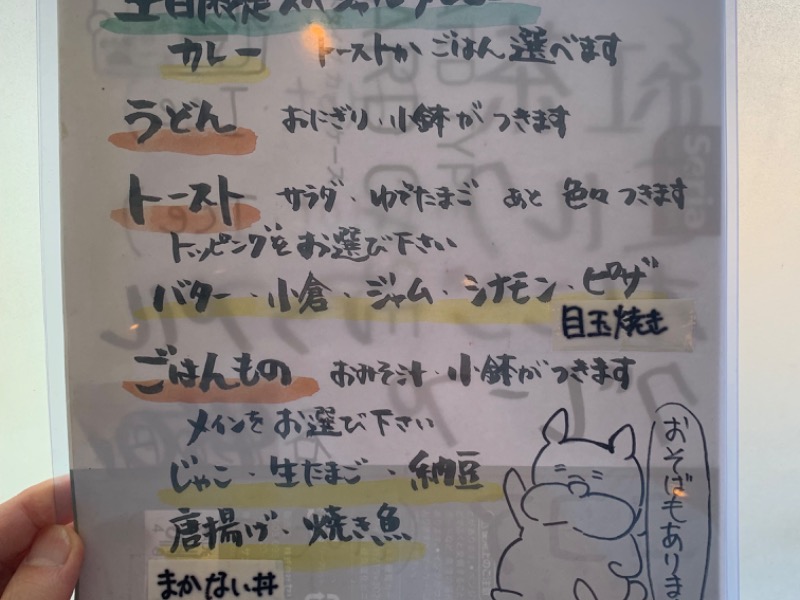 カレー トーストかごはん選べます
うどん おにぎり・小鉢がつきます
トースト サラダ・ゆでたまご あと 色々つきます
トッピングをお選び下さい
バター・小倉・ジャム・シナモン・ピザ
目玉焼き
ごはんもの おみそ汁・小鉢がつきます
メインをお選び下さい
じゃこ・生たまご・納豆
唐揚げ・焼き魚
まかない丼
おそばもありま